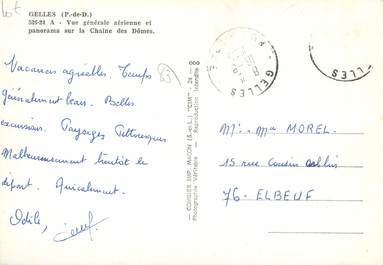 lot
GELLES (P.-de-D.)
526-24 A - Vue générale aérienne et
panorama sur la Chaîne des Dômes.
Vacances agréables. Temps
Généralement beau. Belles
excursions. Paysages Pittoresques
Malheureusement bientôt le
départ. Amicalement.
Odile,
63
COMBIER IMP. MACON (S.-et-L.) "CIM"
Photographie Véritable - Reproduction Interdite
GELLES
GELLES
Mr. Mme MOREL.
15 rue Cousin
76 - ELBEUF